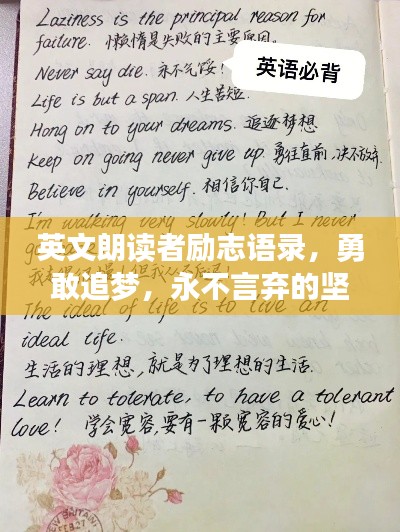 Laziness is the principal reason for
failure. 懒惰是失败的主要原因.
Never say die. 永不气馁!
英语必背
Life is but a span. 人生苦短.
Hong on to your dreams. 追逐梦想
Keep on going never give up. 勇往直前,决不放弃.
Believe in yourself. 相信你自己.
I'm walking very slowly! But I never
英文朗读者励志语录，勇
敢追梦，永不言弃的坚
The ideal of life is to live an
ideal life.
生活的理想,就是为了理想的生活.
Learn to tolerate, to have a tolerant
love! 学会宽容,要有一颗宽容的爱心!